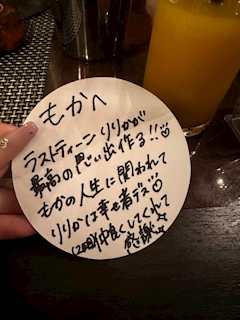 もかへ
ラストティーンりりかが
最高の思い出作る!!
もかの人生に関われて
りりかは幸せ者デス
仲良くしてくれて
感謝☆